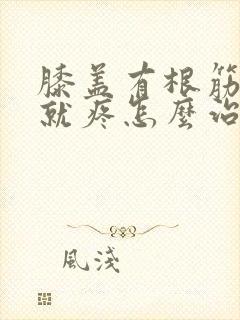 膝盖有根筋
就疼怎麼治
風淺